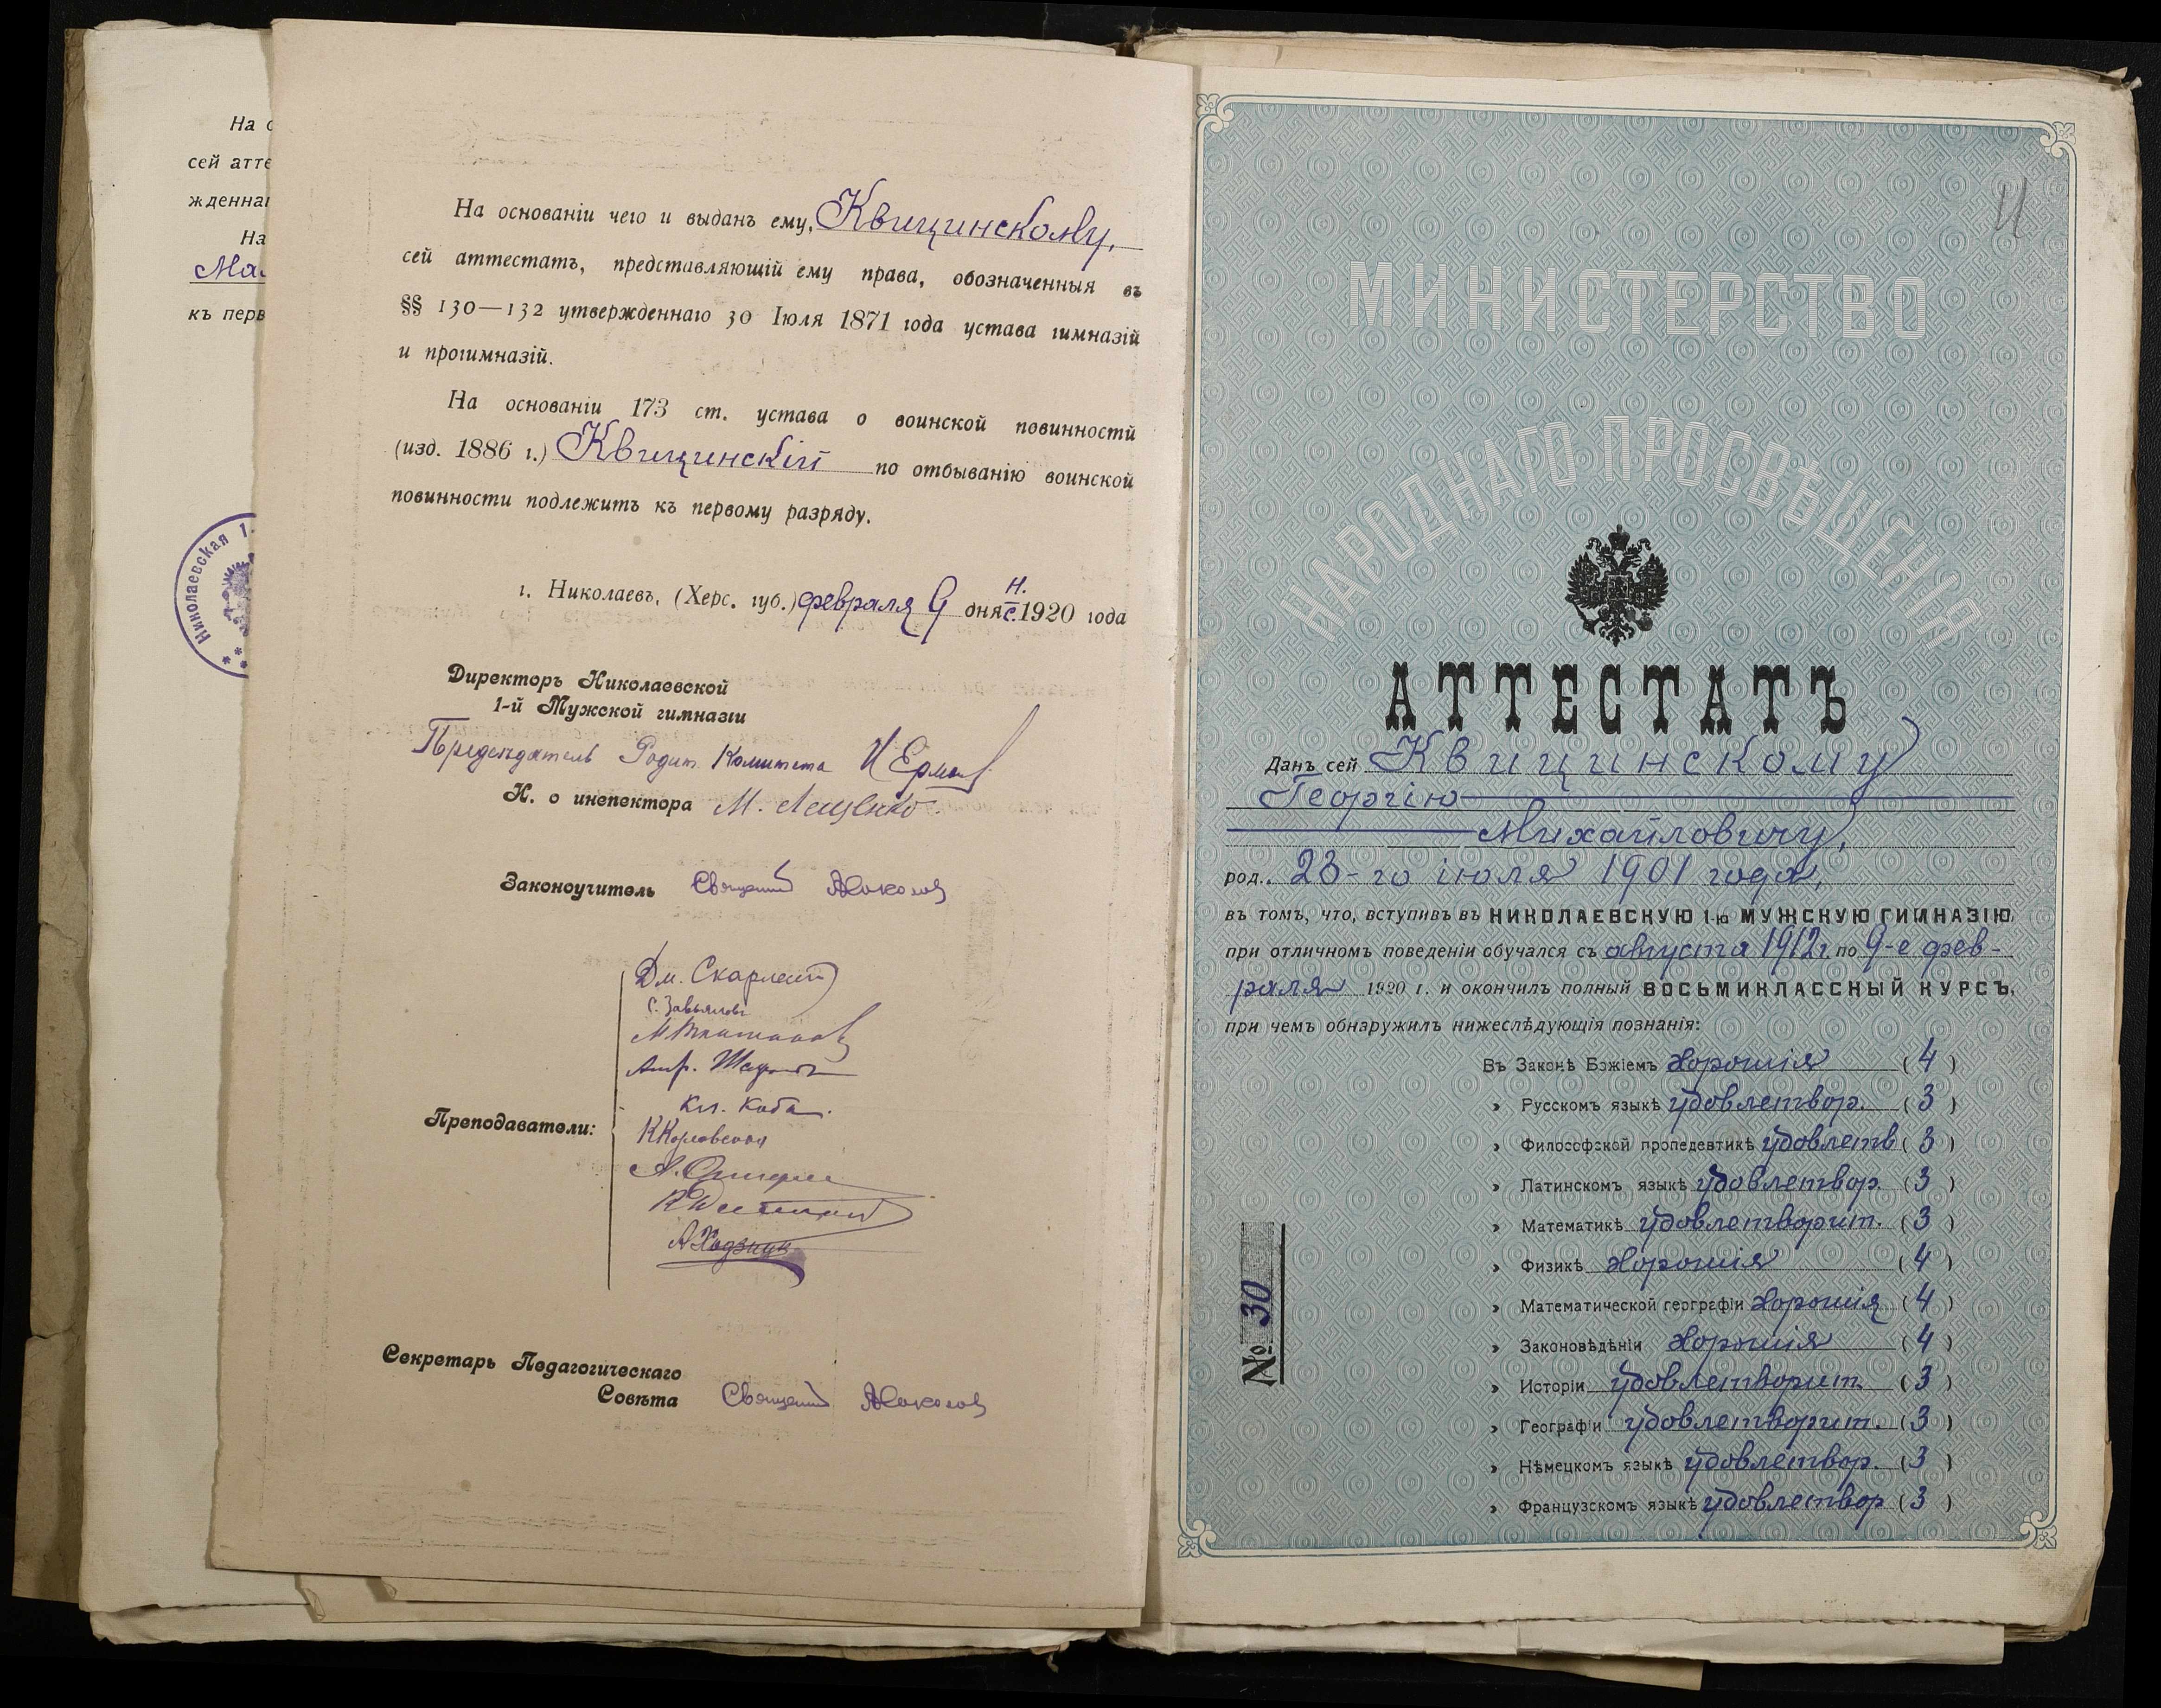 На о
сей атте
жденнаг
На
Ма
къ перв
Николаевская 1
На основаніи чего и выданъ ему, Квицинскому,
сей аттестатъ, представляющій ему права, обозначенныя въ
§§ 130—132 утвержденнаго 30 Іюля 1871 года устава гимназій
и прогимназій.
На основаніи 173 ст. устава о воинской повинностй
(изд. 1886 г.) Квицинскій по отбыванію воинской
повинности подлежитъ къ первому разряду.
г. Николаевъ, (Херс. губ.) февраля 9 дня н. с. 1920 года
Директоръ Николаевской
1-й Мужской гимназіи
Председатель Родит. Комитета
И. о инспектора М. Лященко.
Законоучитель
Преподаватели:
Дм. Скарлет
С. Завьялов
Кл. Коба.
А. Ходзицк
Секретарь Педагогическаго
Совѣта
И
МИНИСТЕРСТВО
НАРОДНАГО ПРОСВѢЩЕНІЯ
АТТЕСТАТЪ
Данъ сей Квицинскому
Георгію
Михайловичу,
род. 23-го іюля 1901 года,
въ томъ, что, вступивъ въ НИКОЛАЕВСКУЮ 1-ю МУЖСКУЮ ГИМНАЗІЮ,
при отличномъ поведеніи обучался съ августа 1912 г. по 9-е фев-
раля 1920 г. и окончилъ полный ВОСЬМИКЛАССНЫЙ КУРСЪ,
при чемъ обнаружилъ нижеслѣдующія познанія:
Въ Законѣ Божіемъ хорошія (4)
» Русскомъ языкѣ удовлетвор. (3)
» Философской пропедевтикѣ удовлетв (3)
» Латинскомъ языкѣ удовлетвор. (3)
» Математикѣ удовлетворит. (3)
» Физикѣ хорошія (4)
» Математической географіи хорошія (4)
» Законовѣдѣніи хорошія (4)
» Исторіи удовлетворит. (3)
» Географіи удовлетворит. (3)
» Нѣмецкомъ языкѣ удовлетвор. (3)
» Французскомъ языкѣ удовлетвор (3)
№ 30